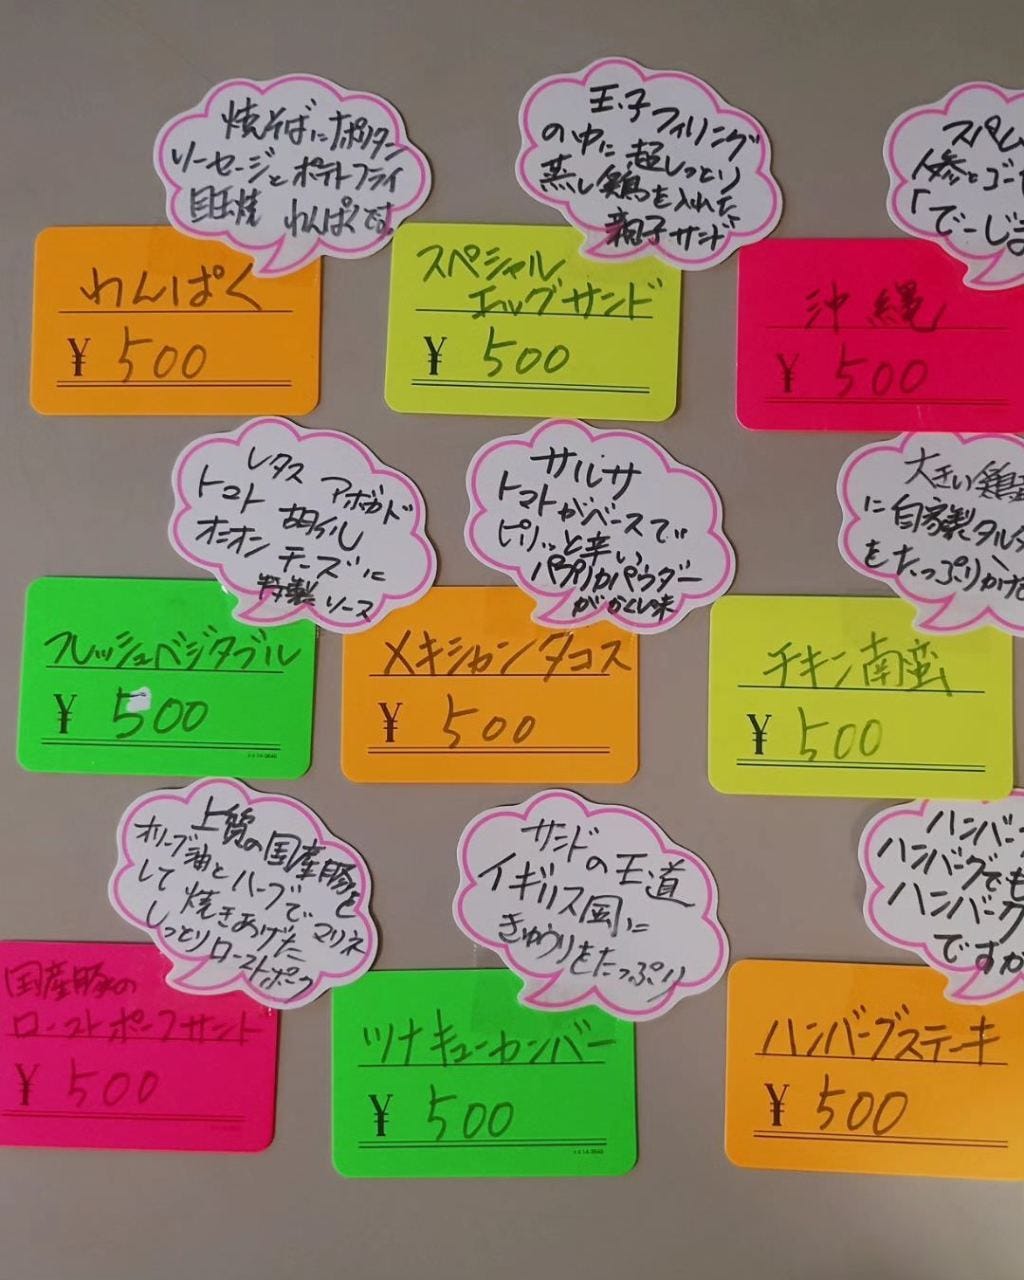 焼そばにナポリタン
ソーセージとポテトフライ
目玉焼 わんぱくです。
わんぱく
¥ 500
玉子フィリング
の中に 超しっとり
蒸し鶏を入れた
親子サンド
スペシャル
エッグサンド
¥ 500
スパム
人参とゴー
「でーじま
沖縄
¥ 500
レタス アボカド
トマト 胡瓜
オニオン チーズに
特製 ソース
フレッシュベジタブル
¥ 500
サルサ
トマトがベースで
ピリッと辛い
パプリカパウダー
がかくし味
メキシカンタコス
¥ 500
大きい鶏
に自家製タルタ
をたっぷりかけ
チキン南蛮
¥ 500
上質の国産豚を
オリーブ油とハーブでマリネ
して 焼きあげた
しっとりローストポーク
国産豚の
ローストポークサンド
¥ 500
サンドの王道
イギリス風に
きゅうりをたっぷり
ツナキューカンバー
¥ 500
ハンバー
ハンバーグでも
ハンバーグ
ですが
ハンバーグステーキ
¥ 500